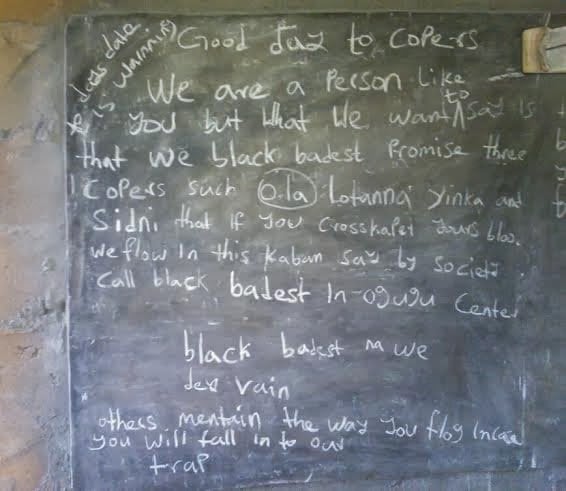 Good day to copers
to days date
is warning
We are a Person Like
You but What We want to say is
that we black badest Promise three
Copers such O.la Lotanna Yinka and
Sidni that if you Crosskapet yours bloo.
we flow in this Kaban say by society
Call black badest In-ogugu Center
black badest na we
dey vain
others mentain the way you flog incase
you will fall in to our
trap